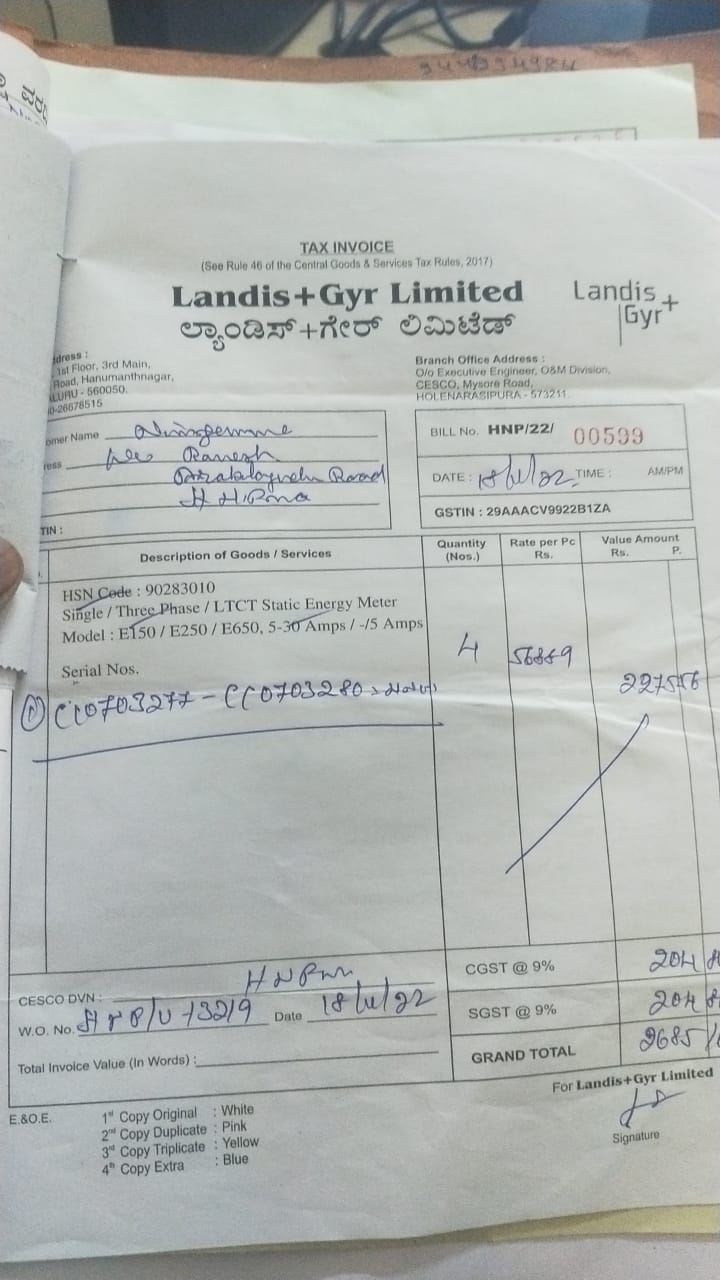 9448994984
TAX INVOICE
(See Rule 46 of the Central Goods & Services Tax Rules, 2017)
Landis+Gyr Limited
ಲ್ಯಾಂಡಿಸ್+ಗೇರ್ ಲಿಮಿಟೆಡ್
Landis
Gyr+
dress :
1st Floor, 3rd Main,
Road, Hanumanthnagar,
ALURU - 560050.
0-26678515
Branch Office Address :
O/o Executive Engineer, O&M Division,
CESCO, Mysore Road,
HOLENARASIPURA - 573211.
omer Name
ress
Ramesh
Road
TIN :
BILL No. HNP/22/ 00599
DATE : 18/11/22 TIME : AM/PM
GSTIN : 29AAACV9922B1ZA
Description of Goods / Services
Quantity (Nos.)
Rate per Pc Rs.
Value Amount Rs. P.
HSN Code : 90283010
Single / Three Phase / LTCT Static Energy Meter
Model : E150 / E250 / E650, 5-30 Amps / -/5 Amps
4 568=89 2275=56
Serial Nos.
CC0703277 - CC0703280
CESCO DVN :
W.O. No. Date 18/11/22
Total Invoice Value (In Words) :
CGST @ 9% 204
SGST @ 9% 204
GRAND TOTAL 2685
For Landis+Gyr Limited
Signature
E.&O.E.
1st Copy Original : White
2nd Copy Duplicate : Pink
3rd Copy Triplicate : Yellow
4th Copy Extra : Blue